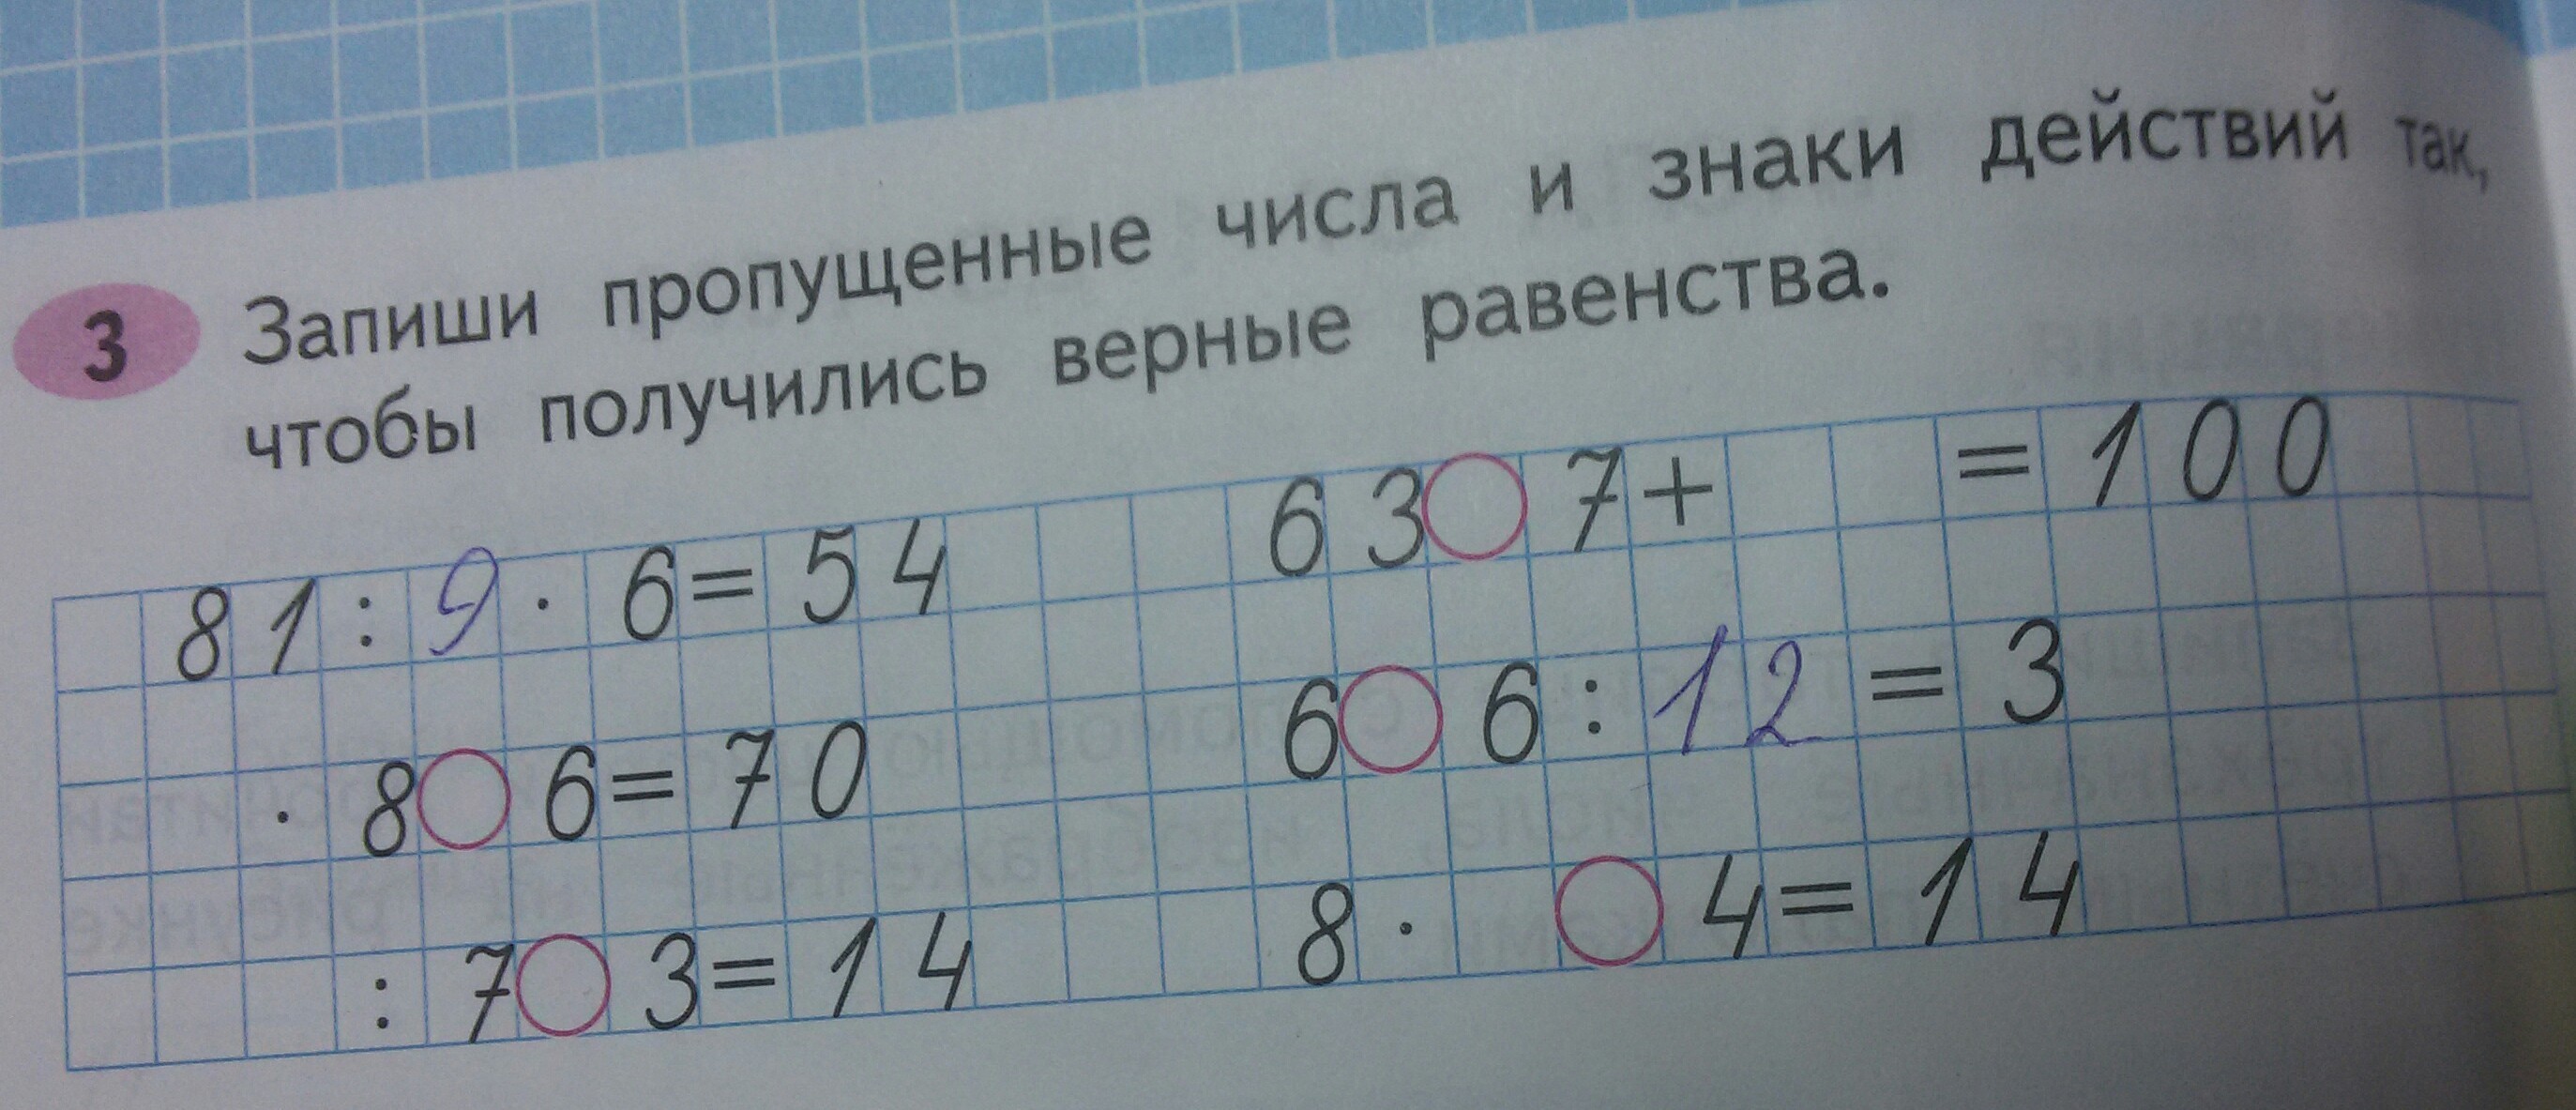 3 Запиши пропущенные числа и знаки действий так,
чтобы получились верные равенства.
81:9·6=54 63○7+ =100
·8○6=70 6○6:12=3
:7○3=14 8· ○4=14